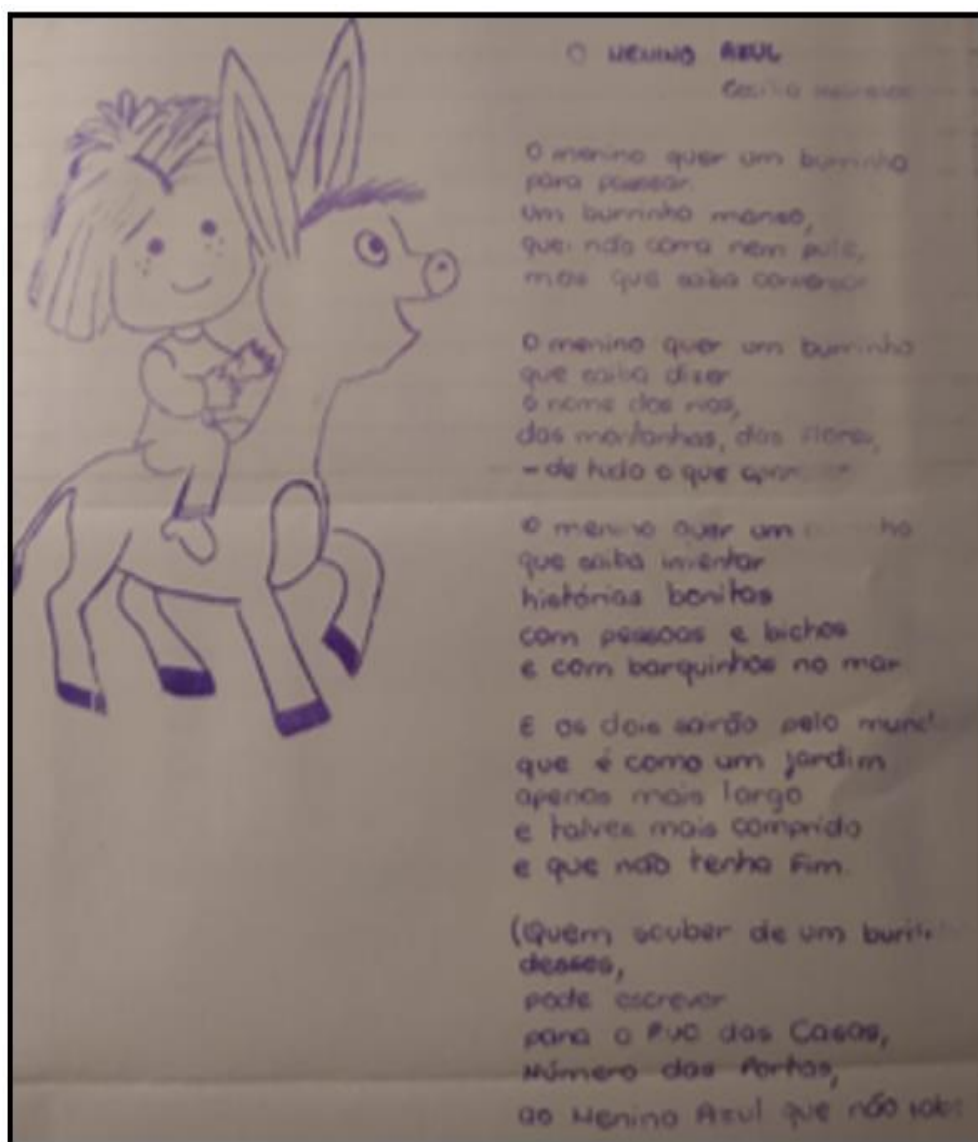 O MENINO AZUL
Cecília Meireles
O menino quer um burrinho
para passear
um burrinho manso,
que não corra nem pule,
mas que saiba conversar
O menino quer um burrinho
que saiba dizer
o nome dos rios,
das montanhas, das flores,
- de tudo o que
O menino quer um
que saiba inventar
histórias bonitas
com pessoas e bichos
e com barquinhos no mar
E os dois sairão pelo mundo
que é como um jardim
apenas mais largo
e talvez mais comprido
e que não tenha fim.
(Quem souber de um
desses,
pode escrever
para a Rua das Casas,
Número das Portas,
ao Menino Azul que não sabe